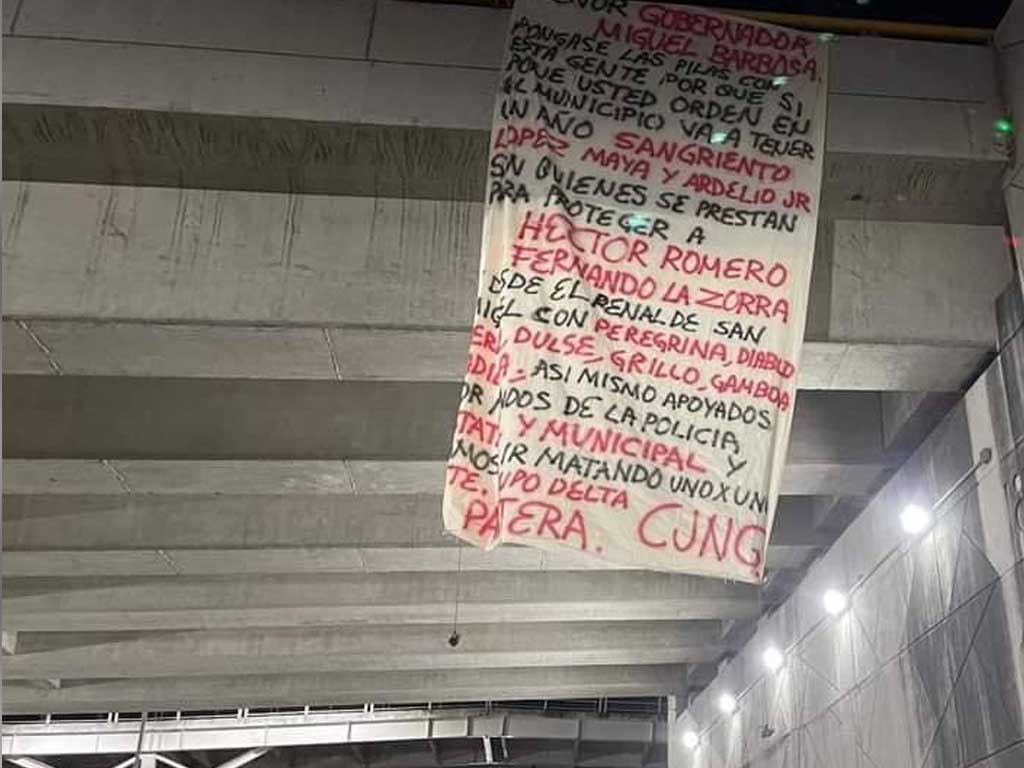 GOBERNADOR
MIGUEL BARBOSA.
PONGASE LAS PILAS CON
ESTA GENTE, POR QUE SI,
PONE USTED ORDEN EN
EL MUINICIPIO VA A TENER
UN AÑO SANGRIENTO
LOPEZ MAYA Y ARDELIO JR
SN QUIENES SE PRESTAN
PRA PROTEGER A
HECTOR ROMERO
FERNANDO LA ZORRA
SDE EL PENAL DE SAN
CON PEREGRINA, DIABLO
DULSE, GRILLO, GAMBOA
ASI MISMO APOYADOS
DOS DE LA POLICIA
Y MUNICIPAL Y
IR MATANDO UNO X UN
TE. UPO DELTA
PATERA. CJNG